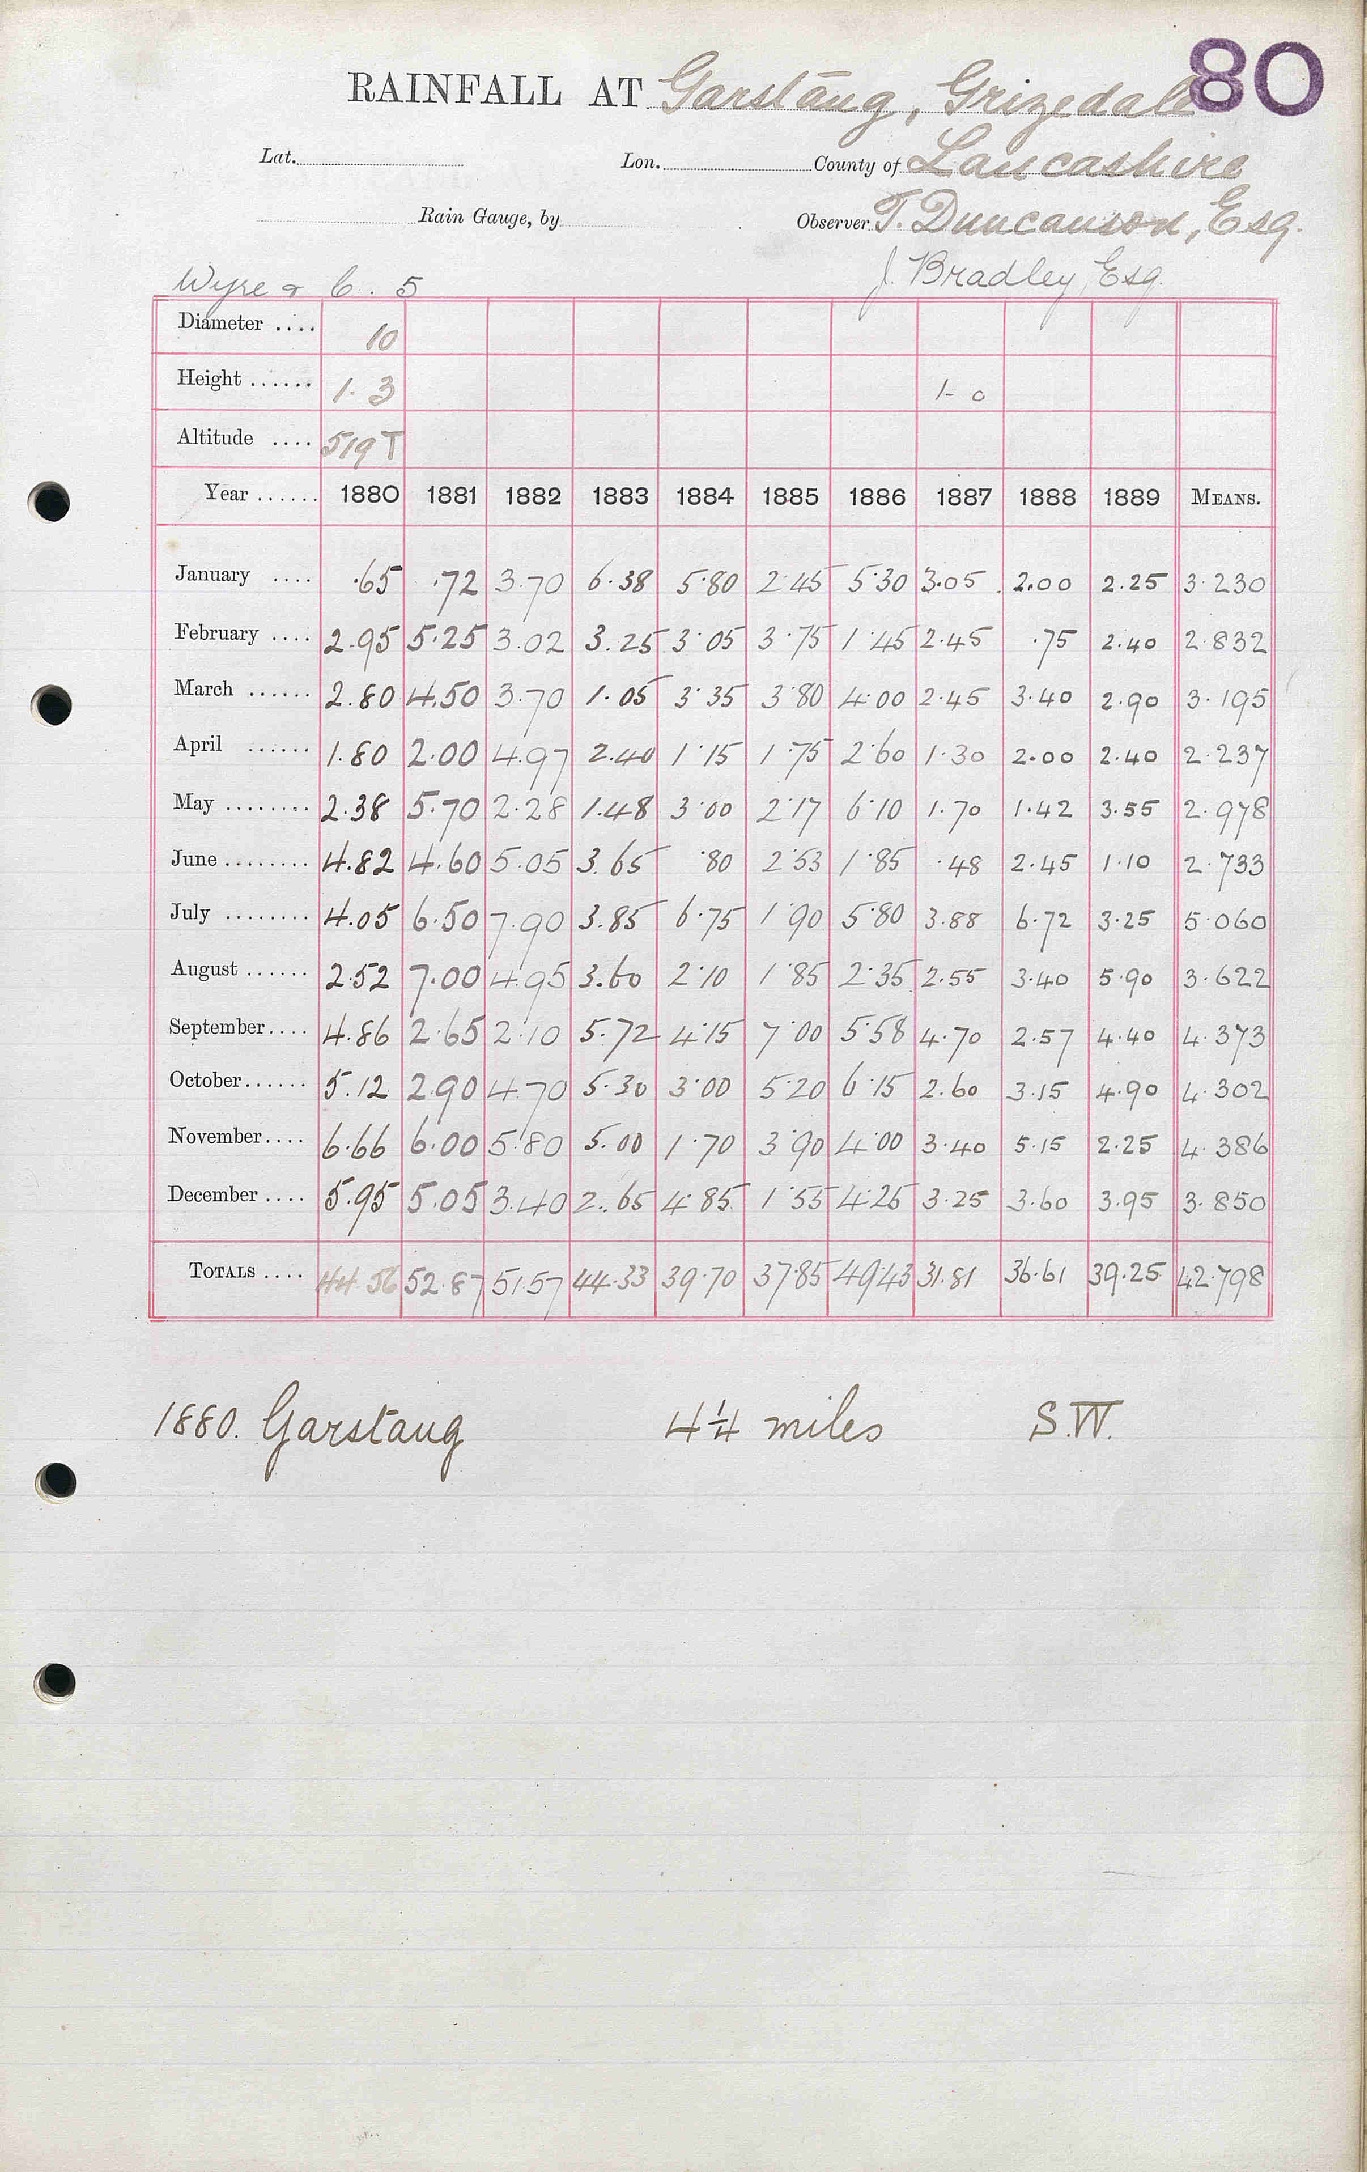 80
RAINFALL AT Garstang, Grizedale
Lat. Lon. County of Lancashire
Rain Gauge, by Observer T. Duncanson, Esq.
J. Bradley, Esq.
Wyre & C. 5
Diameter .... 10
Height ...... 1. 3 1- 0
Altitude .... 519 T
Year ...... 1880 1881 1882 1883 1884 1885 1886 1887 1888 1889 MEANS.
January .... .65 .72 3.70 6.38 5.80 2.45 5.30 3.05 2.00 2.25 3.230
February .... 2.95 5.25 3.02 3.25 3.05 3.75 1.45 2.45 .75 2.40 2.832
March ...... 2.80 4.50 3.70 1.05 3.35 3.80 4.00 2.45 3.40 2.90 3.195
April ...... 1.80 2.00 4.97 2.40 1.15 1.75 2.60 1.30 2.00 2.40 2.237
May ........ 2.38 5.70 2.28 1.48 3.00 2.17 6.10 1.70 1.42 3.55 2.978
June ........ 4.82 4.60 5.05 3.65 .80 2.53 1.85 .48 2.45 1.10 2.733
July ........ 4.05 6.50 7.90 3.85 6.75 1.90 5.80 3.88 6.72 3.25 5.060
August ...... 2.52 7.00 4.95 3.60 2.10 1.85 2.35 2.55 3.40 5.90 3.622
September.... 4.86 2.65 2.10 5.72 4.15 7.00 5.58 4.70 2.57 4.40 4.373
October...... 5.12 2.90 4.70 5.30 3.00 5.20 6.15 2.60 3.15 4.90 4.302
November.... 6.66 6.00 5.80 5.00 1.70 3.90 4.00 3.40 5.15 2.25 4.386
December .... 5.95 5.05 3.40 2.65 4.85 1.55 4.25 3.25 3.60 3.95 3.850
TOTALS .... 44.56 52.87 51.57 44.33 39.70 37.85 49.43 31.81 36.61 39.25 42.798
1880. Garstang 4 1/4 miles S.W.